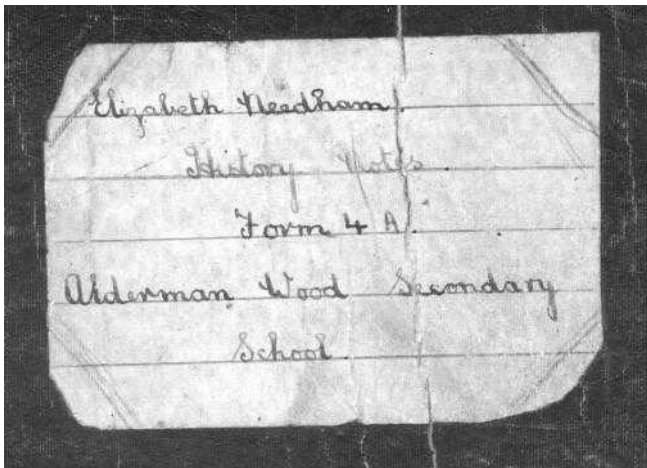 Elizabeth Needham.
History Notes
Form 4 A.
Alderman Wood Secondary
School.